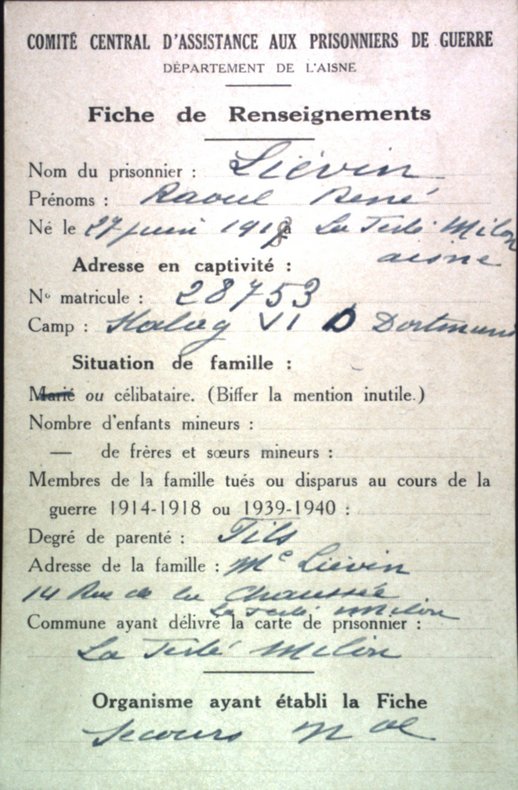 COMITÉ CENTRAL D'ASSISTANCE AUX PRISONNIERS DE GUERRE
DÉPARTEMENT DE L'AISNE
Fiche de Renseignements
Nom du prisonnier : Liévin
Prénoms : Raoul René
Né le 27 juin 191 à La Ferté Milon
aisne
Adresse en captivité :
No matricule : 28753
Camp : Stalag VI D Dortmund
Situation de famille :
Marié ou célibataire. (Biffer la mention inutile.)
Nombre d'enfants mineurs :
— de frères et sœurs mineurs :
Membres de la famille tués ou disparus au cours de la
guerre 1914-1918 ou 1939-1940 :
Degré de parenté : Fils
Adresse de la famille : Me Liévin
14 Rue de la Chaussée
La Ferté Milon
Commune ayant délivré la carte de prisonnier :
La Ferté Milon
Organisme ayant établi la Fiche
Secours Nal